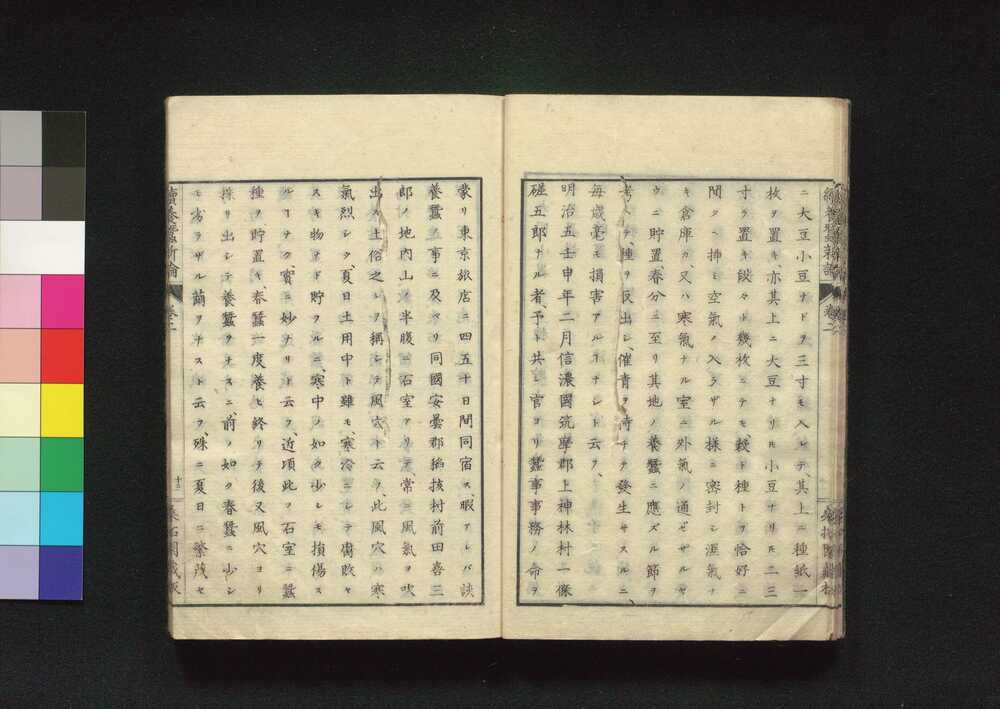 ニ大豆小豆ナドヲ三寸モ入レテ、其上ニ種紙一
枚ヲ置キ、亦其上ニ大豆ナリ𪜈小豆ナリ𪜈二三
寸ヲ置キ、段々ト幾枚ニテモ、穀ト種トヲ恰好ニ
間クヘ挿モ空氣ノ入ラザル様ニ密封シ、湿氣ナ
キ倉庫カ、又ハ寒氣ナル室ニ外氣ノ通ゼザルヤ
ウニ貯置、春分ニ至リ其地ノ養蠶ニ應ズル節ヲ
考ヘテ、種ヲ取出シ、催青ヲ待チテ發生サスルニ、
毎歳毫モ損害アルコナシト云フ、
明治五壬申年二月信濃國筑摩郡上神林村一條
磋五郎ナル者、予ト共ニ官ヨリ蠶事事務ノ命ヲ
蒙リ東京旅店ニ四五十日間同宿ス、暇アレバ談
養蠶ノ事ニ及ベリ同國安曇郡稲核村前田喜三
郎ノ地内山ノ半腹ニ石室アリテ、常ニ風氣ヲ吹
出ス、土俗之レヲ稱シテ風穴ト云フ、此風穴ハ寒
氣烈シク、夏日土用中ト雖モ、寒冷ニシテ腐敗ヤ
スキ物ナド貯フルニ、寒中ノ如ク少シモ損傷ス
ルコナク、實ニ妙ナリト云フ、近頃此ノ石室ニ蠶
種ヲ貯置キ、春蠶一度養ヒ終リテ後又風穴ヨリ
採リ出シテ養蠶ヲナスニ、前ノ如ク春蠶ニ少シ
モ劣ラザル繭ヲナスト云フ、殊ニ夏日ニ繁茂セ
續養蠶新論
卷二
十二